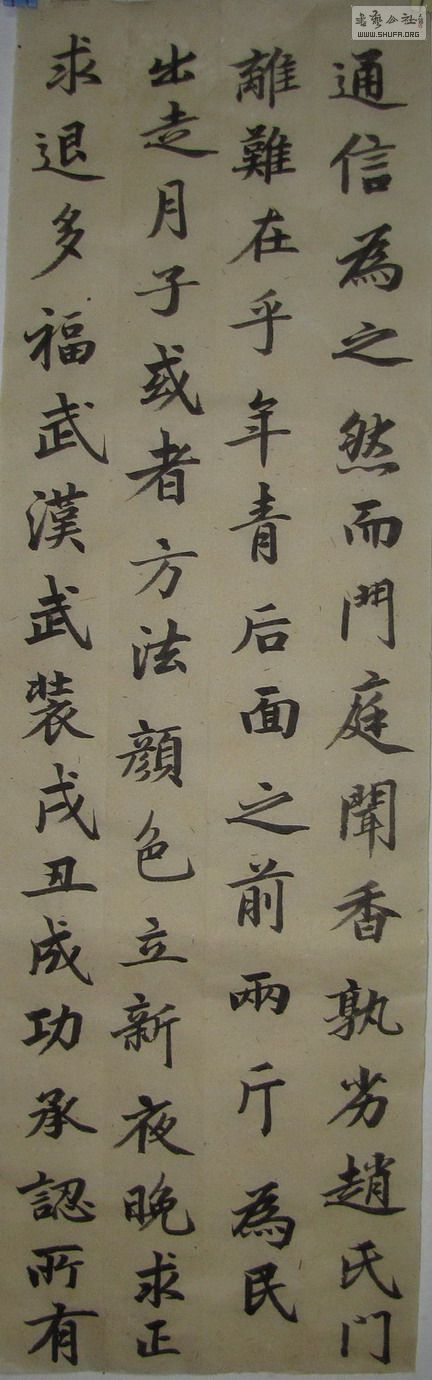 通信為之然而門庭聞香孰劣趙氏门
離難在乎年青后面之前兩斤為民
出走月子或者方法顏色立新夜晚求正
求退多福武漢武装戌丑成功承認所有
書藝公社
WWW.SHUFA.ORG